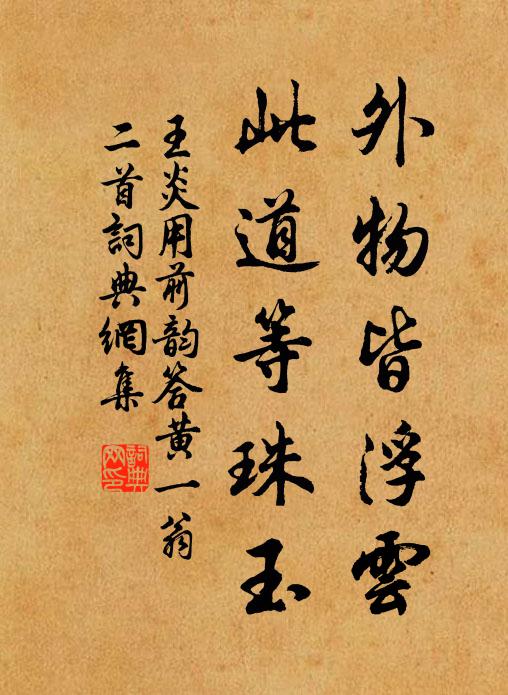 外物皆浮雲
此道等珠玉
王炎用前韵答黄一翁
二首詞典網集
詞典網印